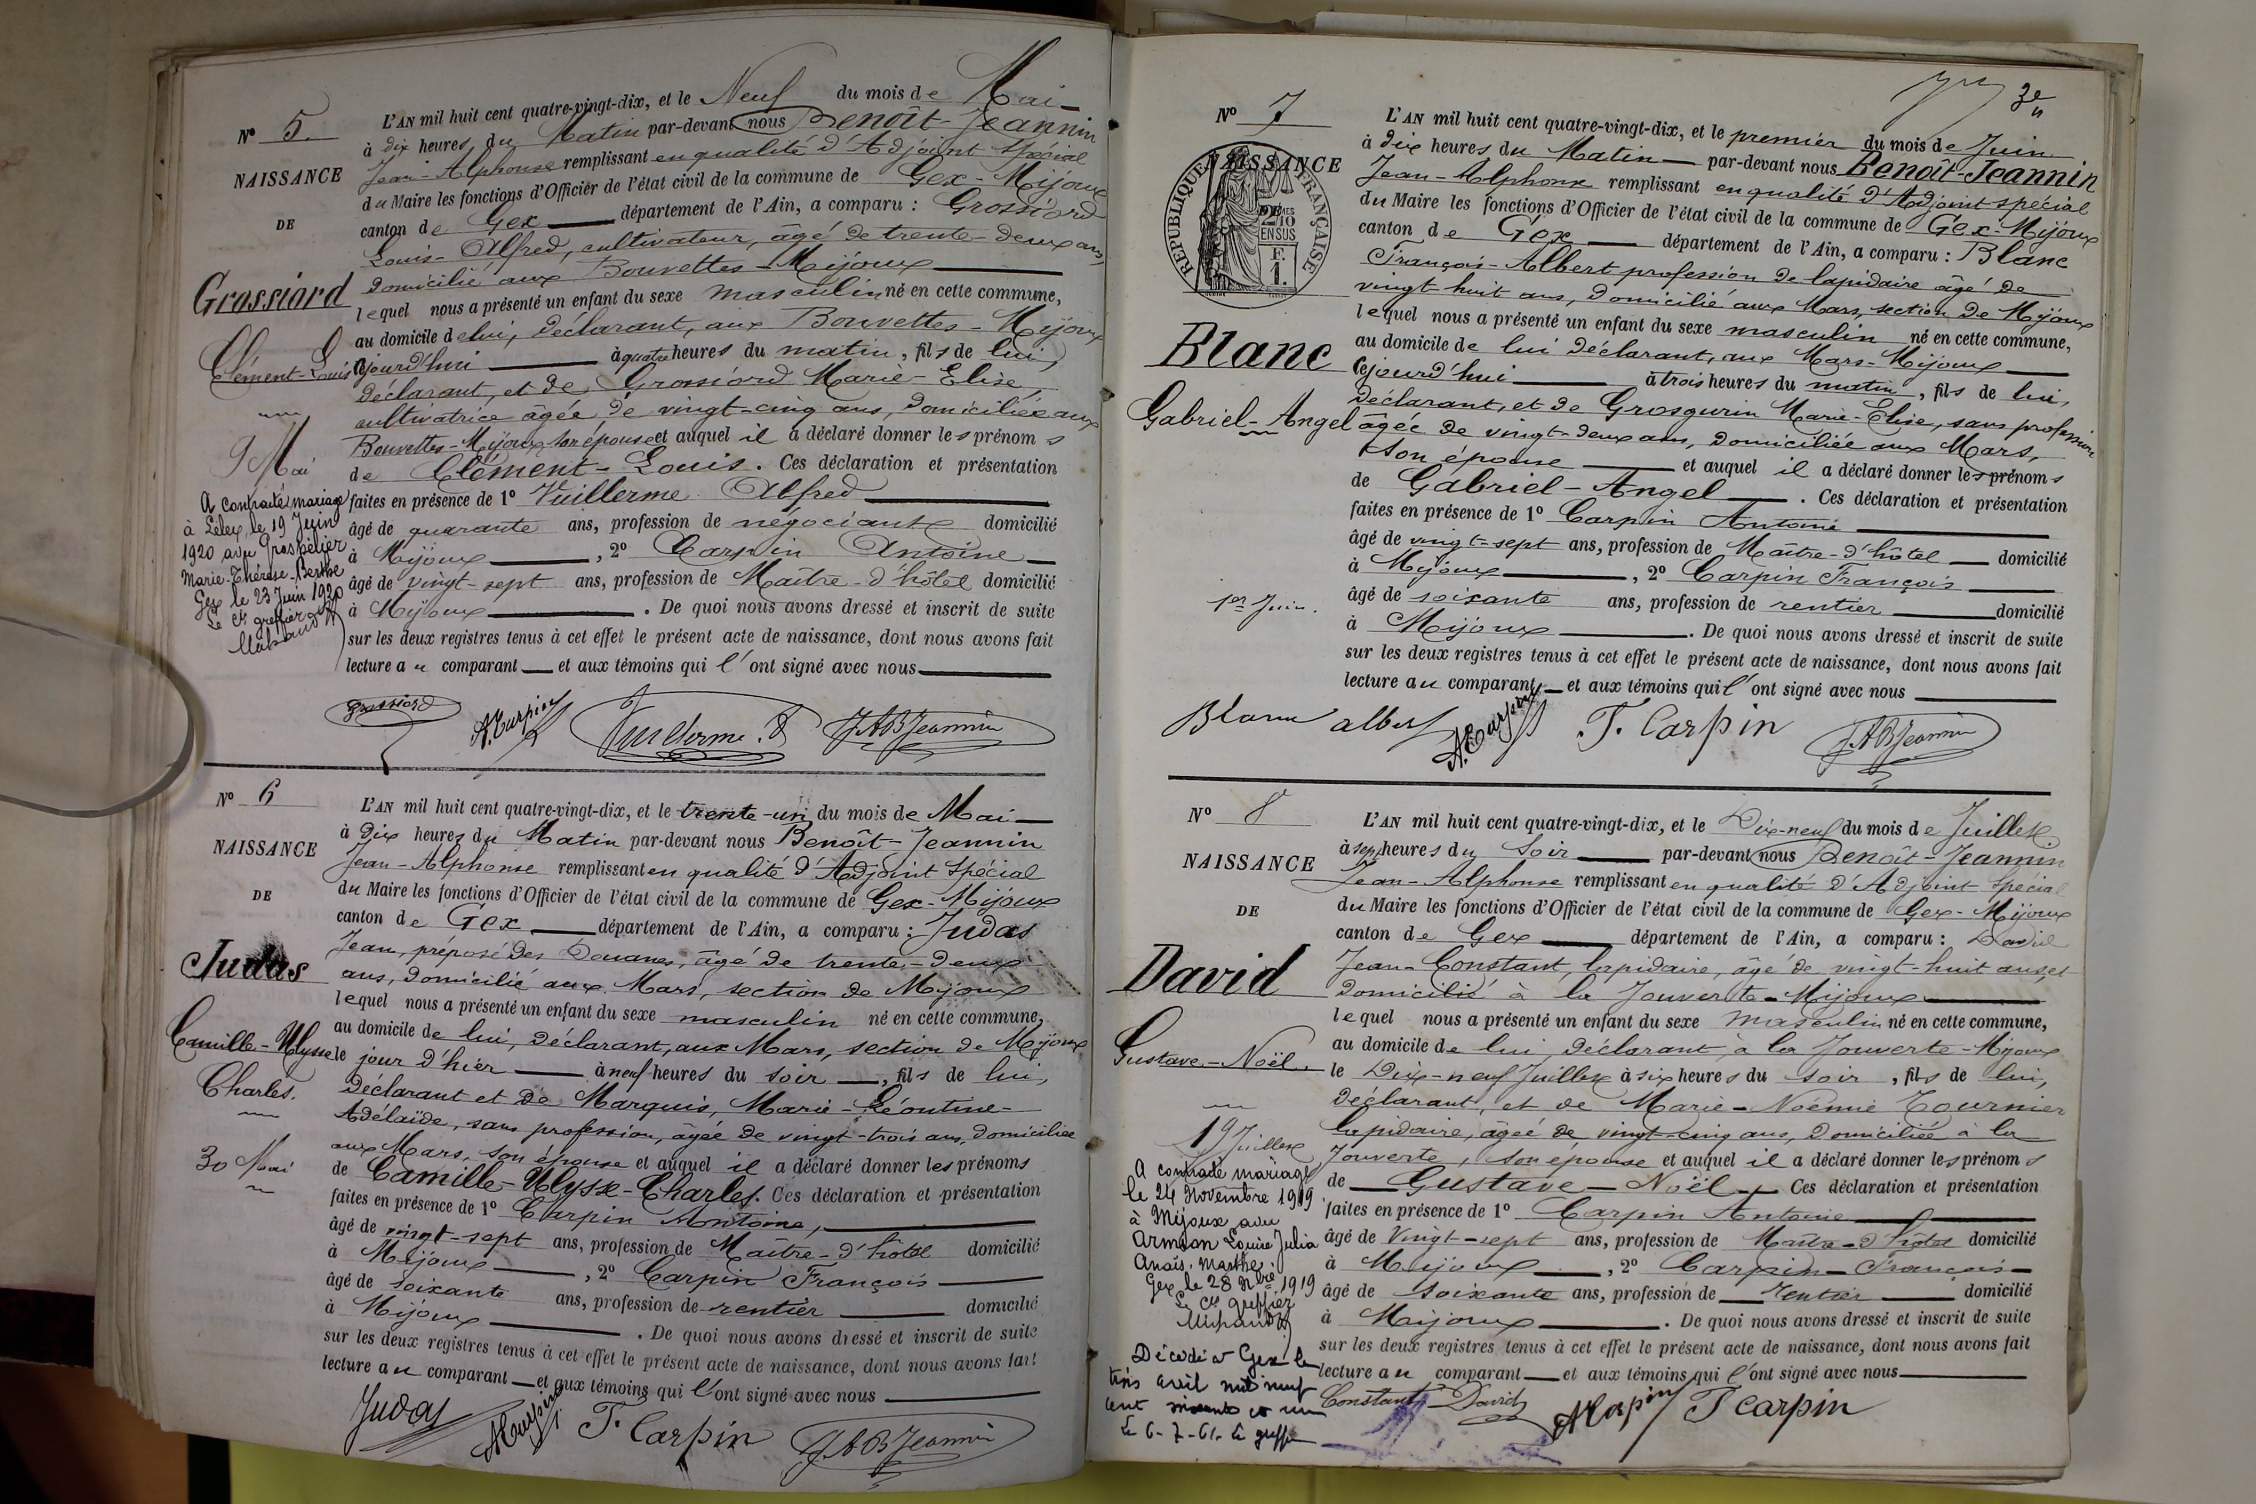 N° 5.
NAISSANCE
DE
Grossiord
Clément-Louis
9 Mai
A contracté mariage
à Lélex, le 19 Juin
1920 avec Grospélier
Marie-Thérèse-Berthe
Gex le 23 Juin 1920
Le cis greffier
L'AN mil huit cent quatre-vingt-dix, et le Neuf du mois de Mai
à dix heures du Matin par-devant nous Benoît-Jeannin
Jean-Alphonse remplissant en qualité d'Adjoint spécial
du Maire les fonctions d'Officier de l'état civil de la commune de Gex-Mijoux
canton de Gex département de l'Ain, a comparu : Grossiord
Louis-Alfred, cultivateur, âgé de trente-deux ans,
domicilié aux Bouvettes-Mijoux
lequel nous a présenté un enfant du sexe masculin né en cette commune,
au domicile de lui, déclarant, aux Bouvettes-Mijoux
cejourd'hui à quatre heures du matin, fils de lui,
déclarant, et de Grossiord Marie-Elise,
cultivatrice âgée de vingt-cinq ans, domiciliée aux
Bouvettes-Mijoux, son épouse et auquel il a déclaré donner les prénoms
de Clément-Louis. Ces déclaration et présentation
faites en présence de 1° Vuillerme Alfred
âgé de quarante ans, profession de négociant domicilié
à Mijoux, 2° Carpin Antoine
âgé de vingt-sept ans, profession de Maître-d'hôtel domicilié
à Mijoux. De quoi nous avons dressé et inscrit de suite
sur les deux registres tenus à cet effet le présent acte de naissance, dont nous avons fait
lecture au comparant et aux témoins qui l'ont signé avec nous
Grossiord A. Carpin Vuillerme A JAB Jeannin
N° 6
NAISSANCE
DE
Judas
Camille-Ulysse
Charles.
30 Mai
L'AN mil huit cent quatre-vingt-dix, et le trente-un du mois de Mai
à Dix heures du Matin par-devant nous Benoît-Jeannin
Jean-Alphonse remplissant en qualité d'Adjoint spécial
du Maire les fonctions d'Officier de l'état civil de la commune de Gex-Mijoux
canton de Gex département de l'Ain, a comparu : Judas
Jean, préposé des Douanes, âgé de trente-deux
ans, domicilié aux Mars, section de Mijoux
lequel nous a présenté un enfant du sexe masculin né en cette commune,
au domicile de lui, déclarant, aux Mars, section de Mijoux
le jour d'hier à neuf heures du soir, fils de lui,
déclarant et de Marquis, Marie-Léontine-
Adélaïde, sans profession, âgée de vingt-trois ans, domiciliée
aux Mars, son épouse et auquel il a déclaré donner les prénoms
de Camille-Ulysse-Charles. Ces déclaration et présentation
faites en présence de 1° Carpin Antoine,
âgé de vingt-sept ans, profession de Maître-d'hôtel domicilié
à Mijoux, 2° Carpin François
âgé de soixante ans, profession de rentier domicilié
à Mijoux. De quoi nous avons dressé et inscrit de suite
sur les deux registres tenus à cet effet le présent acte de naissance, dont nous avons fait
lecture au comparant et aux témoins qui l'ont signé avec nous
Judas A Carpin F. Carpin JAB Jeannin
3e
N° 7
NAISSANCE
DE
RÉPUBLIQUE FRANÇAISE
2/10 EN SUS
F. 1.
Blanc
Gabriel-Angel
1er Juin.
L'AN mil huit cent quatre-vingt-dix, et le premier du mois de Juin
à dix heures du Matin par-devant nous Benoît-Jeannin
Jean-Alphonse remplissant en qualité d'Adjoint spécial
du Maire les fonctions d'Officier de l'état civil de la commune de Gex-Mijoux
canton de Gex département de l'Ain, a comparu : Blanc
François-Albert profession de lapidaire âgé de
vingt-huit ans, domicilié aux Mars, section de Mijoux
lequel nous a présenté un enfant du sexe masculin né en cette commune,
au domicile de lui déclarant, aux Mars-Mijoux
Cejourd'hui à trois heures du matin, fils de lui,
déclarant, et de Grosgurin Marie-Elise, sans profession
âgée de vingt-deux ans, domiciliée aux Mars,
son épouse et auquel il a déclaré donner les prénoms
de Gabriel-Angel. Ces déclaration et présentation
faites en présence de 1° Carpin Antoine
âgé de vingt-sept ans, profession de Maître-d'hôtel domicilié
à Mijoux, 2° Carpin François
âgé de soixante ans, profession de rentier domicilié
à Mijoux. De quoi nous avons dressé et inscrit de suite
sur les deux registres tenus à cet effet le présent acte de naissance, dont nous avons fait
lecture au comparant et aux témoins qui l'ont signé avec nous
Blanc albert A. Carpin F. Carpin JAB Jeannin
N° 8
NAISSANCE
DE
David
Gustave-Noël.
19 Juillet
A contracté mariage
le 24 Novembre 1919
à Mijoux avec
Armion Louise Julia
Anaïs. Marthe.
Gex le 28 9bre 1919
Le cis greffier
Décédé à Gex le
trois avril mil neuf
cent soixante et un
Le 6-7-61. Le greffier
L'AN mil huit cent quatre-vingt-dix, et le Dix-neuf du mois de Juillet
à sept heures du Soir par-devant nous Benoît-Jeannin
Jean-Alphonse remplissant en qualité d'Adjoint spécial
du Maire les fonctions d'Officier de l'état civil de la commune de Gex-Mijoux
canton de Gex département de l'Ain, a comparu : David
Jean-Constant, lapidaire, âgé de vingt-huit ans, et
domicilié à la Jouverte-Mijoux
lequel nous a présenté un enfant du sexe masculin né en cette commune,
au domicile de lui, déclarant à la Jouverte-Mijoux
le Dix-neuf Juillet à six heures du soir, fils de lui,
déclarant, et de Marie-Noémie Tournier
lapidaire, âgée de vingt-cinq ans, domiciliée à la
Jouverte, son épouse et auquel il a déclaré donner les prénoms
de Gustave-Noël. Ces déclaration et présentation
faites en présence de 1° Carpin Antoine
âgé de Vingt-sept ans, profession de Maître-d'hôtel domicilié
à Mijoux, 2° Carpin-François
âgé de soixante ans, profession de rentier domicilié
à Mijoux. De quoi nous avons dressé et inscrit de suite
sur les deux registres tenus à cet effet le présent acte de naissance, dont nous avons fait
lecture au comparant et aux témoins qui l'ont signé avec nous
Constant David A Carpin F Carpin